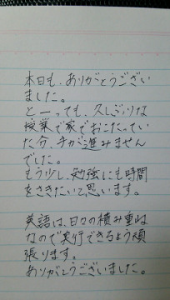 本日も、ありがとうござい
ました。
とーっても、久しぶりな
授業で家でおこたってい
た分、手が進みません
でした。
もう少し、勉強にも時間
をさきたいと思います。
英語は、日々の積み重ね
なので実行できるよう頑
張ります。
ありがとうございました。